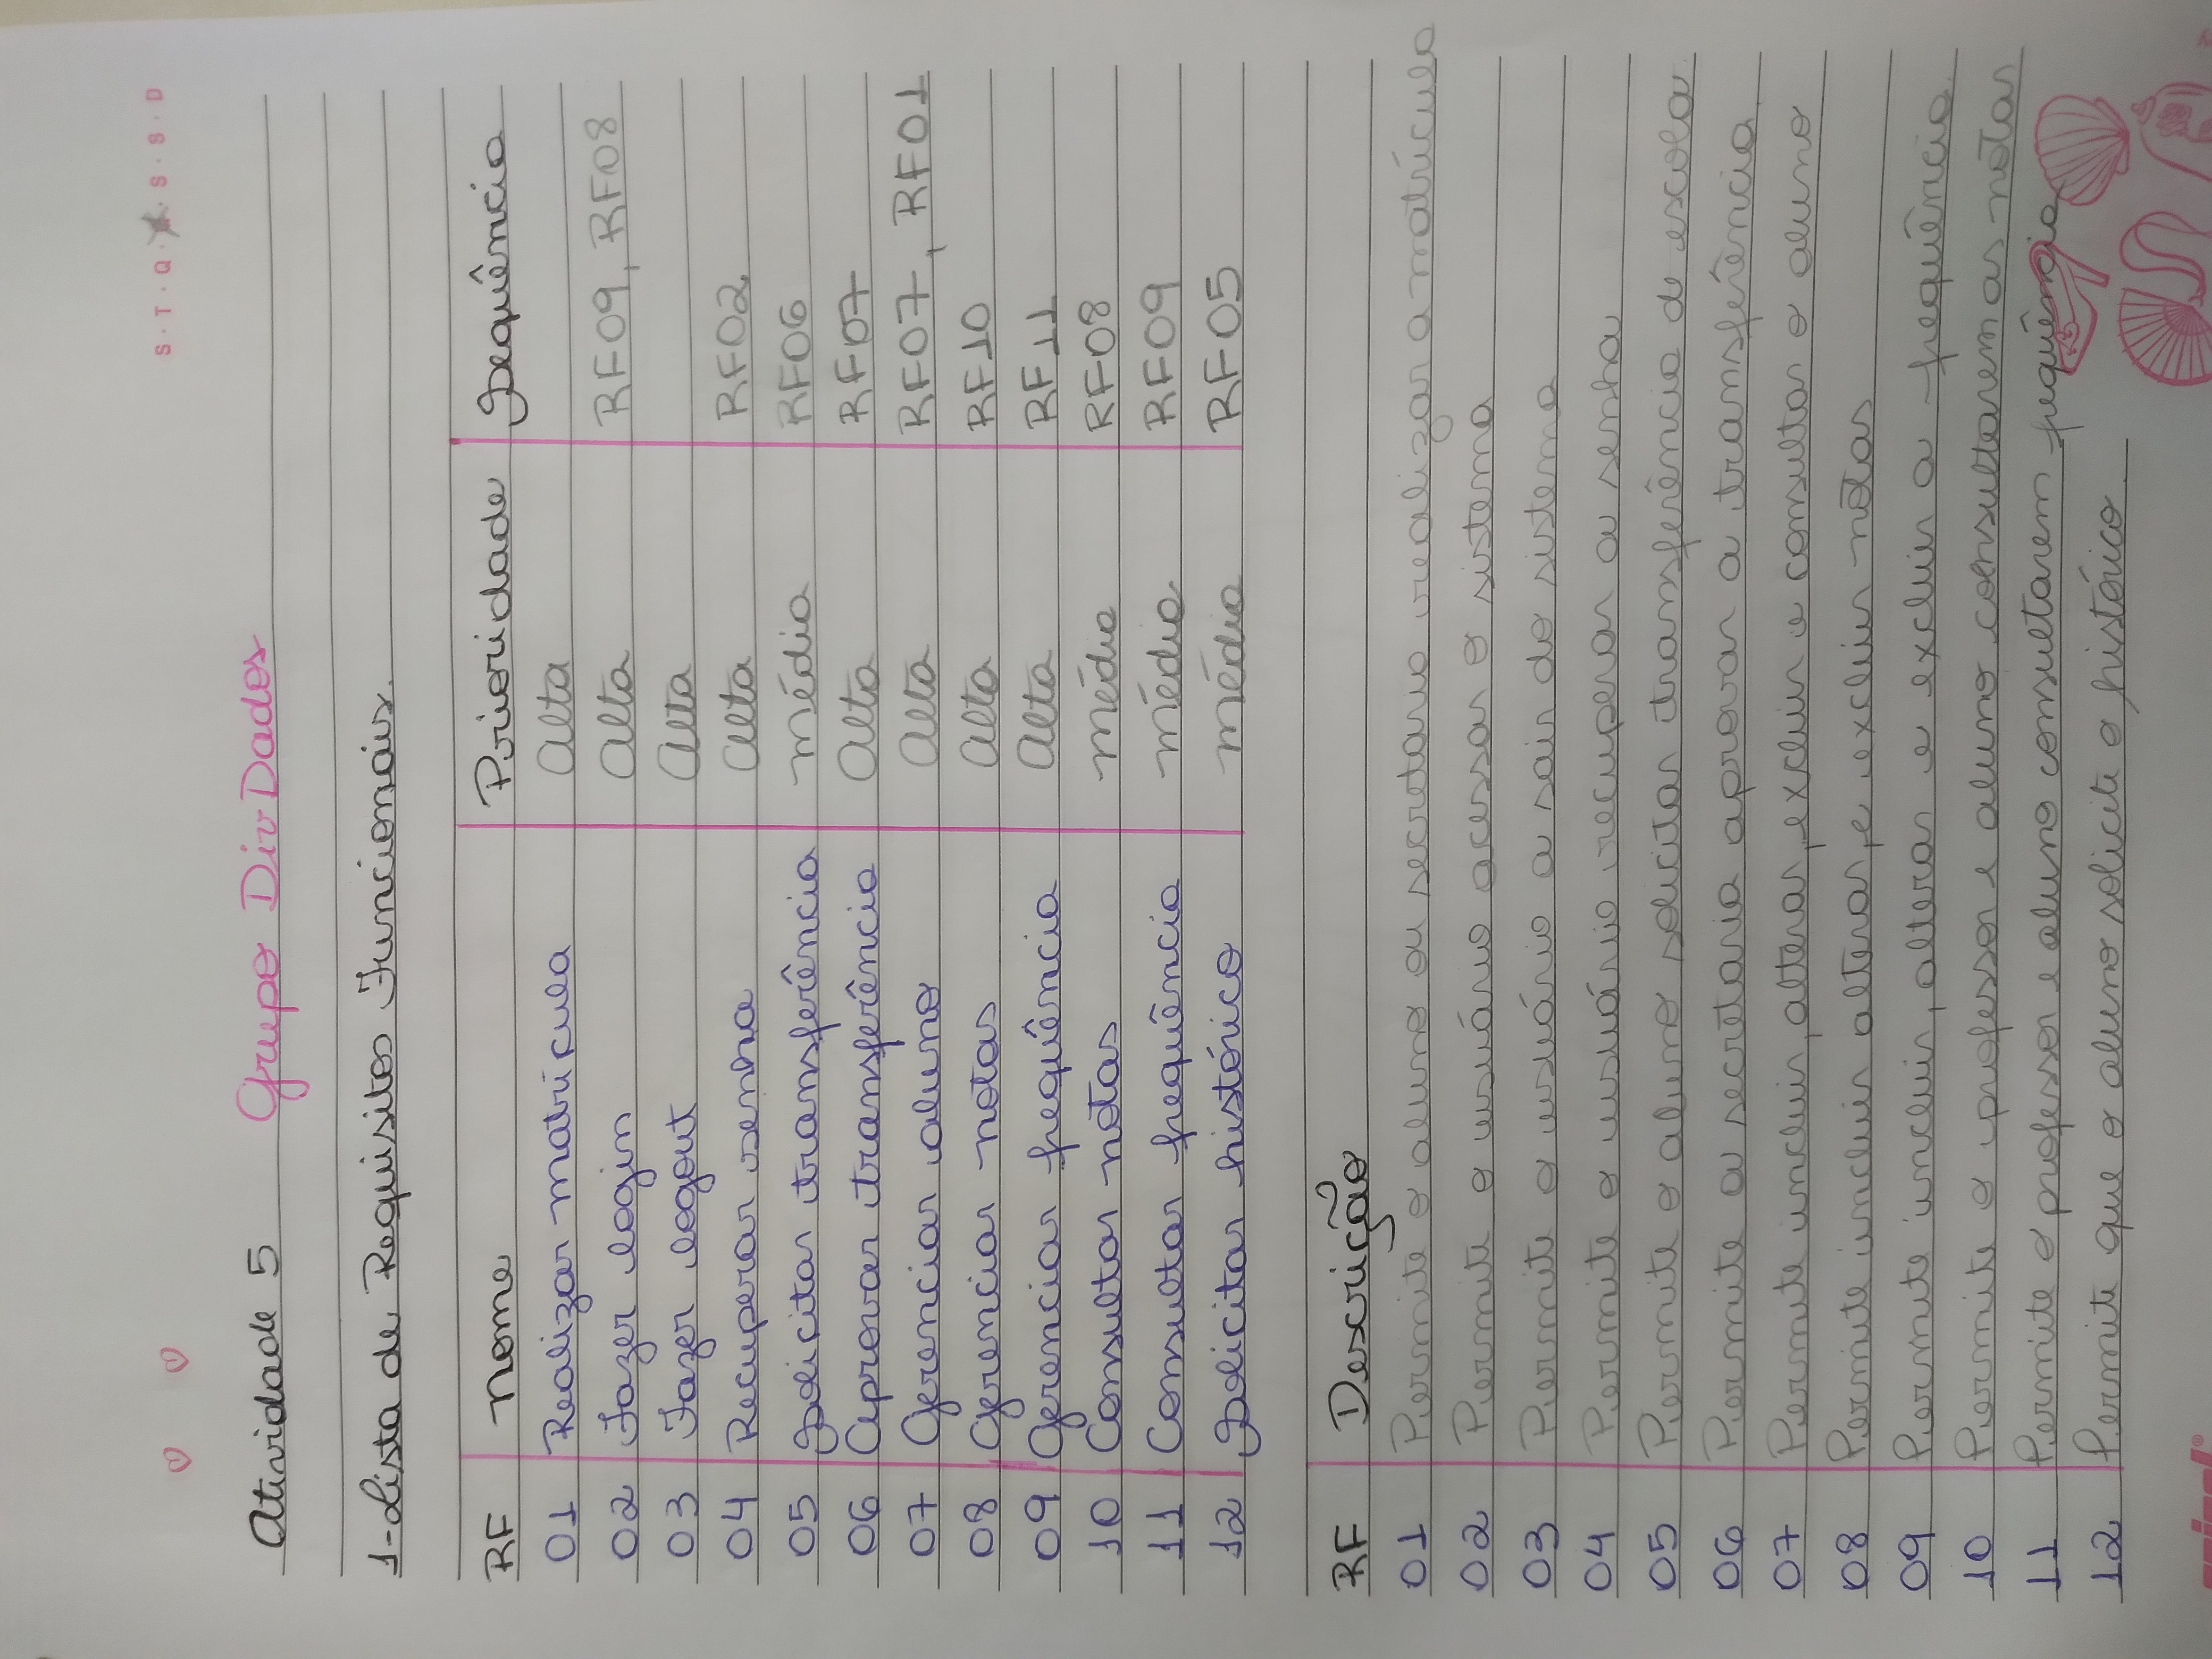 S · T · Q · · S · S · D
Atividade 5 Grupo DivDados
1-Lista de Requisitos Funcionais.
RF Nome Prioridade Sequência
01 Realizar matrícula Alta
02 Fazer login Alta RF09, RF08
03 Fazer logout Alta
04 Recuperar senha Alta RF02
05 Solicitar transferência média RF06
06 Aprovar transferência Alta RF07
07 Gerenciar aluno Alta RF07, RF01
08 Gerenciar notas Alta RF10
09 Gerenciar frequência Alta RF11
10 Consultar notas média RF08
11 Consultar frequência média RF09
12 Solicitar histórico média RF05
RF Descrição
01 Permite o aluno ou secretario realizar a matrícula
02 Permite o usuário acessar o sistema
03 Permite o usuário a sair do sistema
04 Permite o usuário recuperar a senha
05 Permite o aluno solicitar transferência de escola
06 Permite a secretaria aprovar a transferência
07 Permite incluir, alterar, excluir e consultar o aluno
08 Permite incluir alterar, e excluir notas
09 Permite incluir, alterar e excluir a frequência
10 Permite o professor e aluno consultarem as notas
11 Permite o professor e aluno consultarem frequência
12 Permite que o aluno solicite o histórico